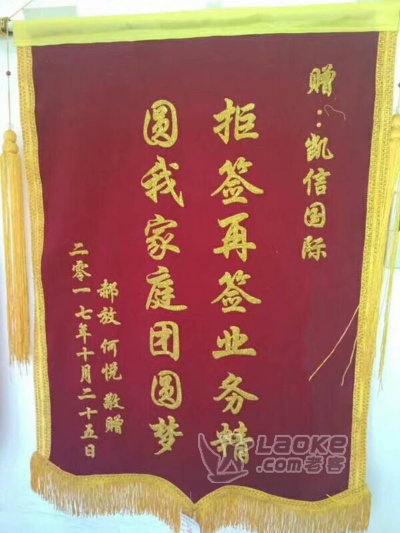 赠：凯信国际
拒签再签业务精
圆我家庭团圆梦
郝放 何悦 敬赠
二零一七年十月二十五日
LAOKE
.com老客